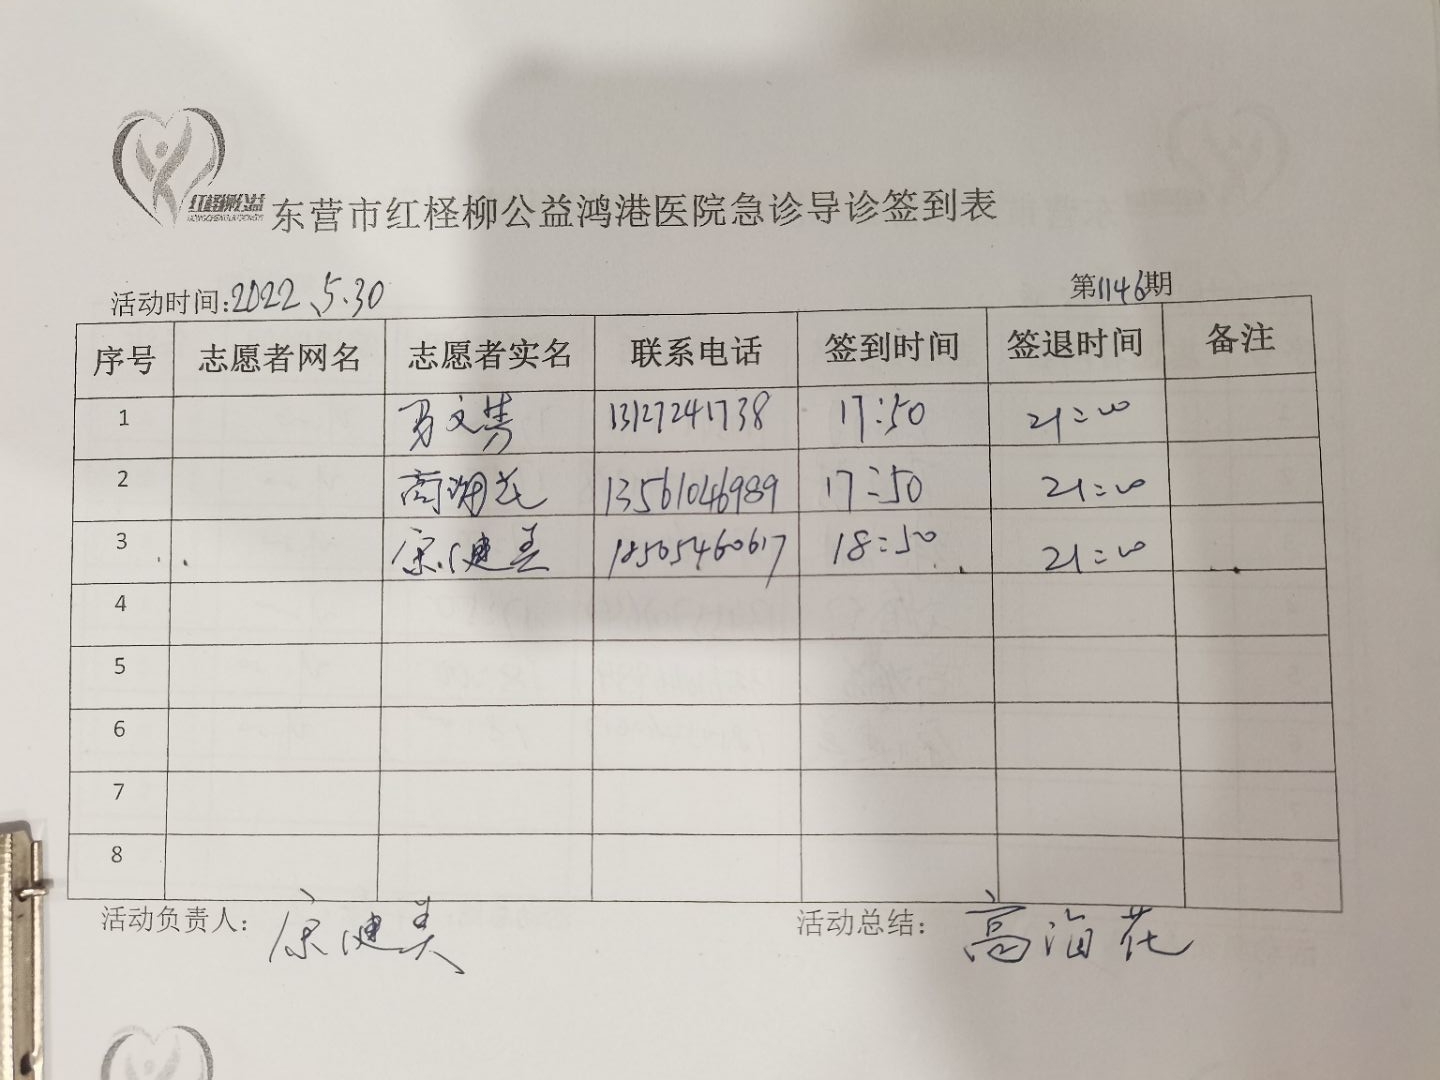 红柽柳公益
东营市红柽柳公益鸿港医院急诊导诊签到表
活动时间:2022、5.30 第1146期
序号 志愿者网名 志愿者实名 联系电话 签到时间 签退时间 备注
1 13127241738 17:50 21:00
2 13561046989 17:50 21:00
3 康健美 18505460617 18:50 21:00
4
5
6
7
8
活动负责人: 康健美 活动总结: 高海花